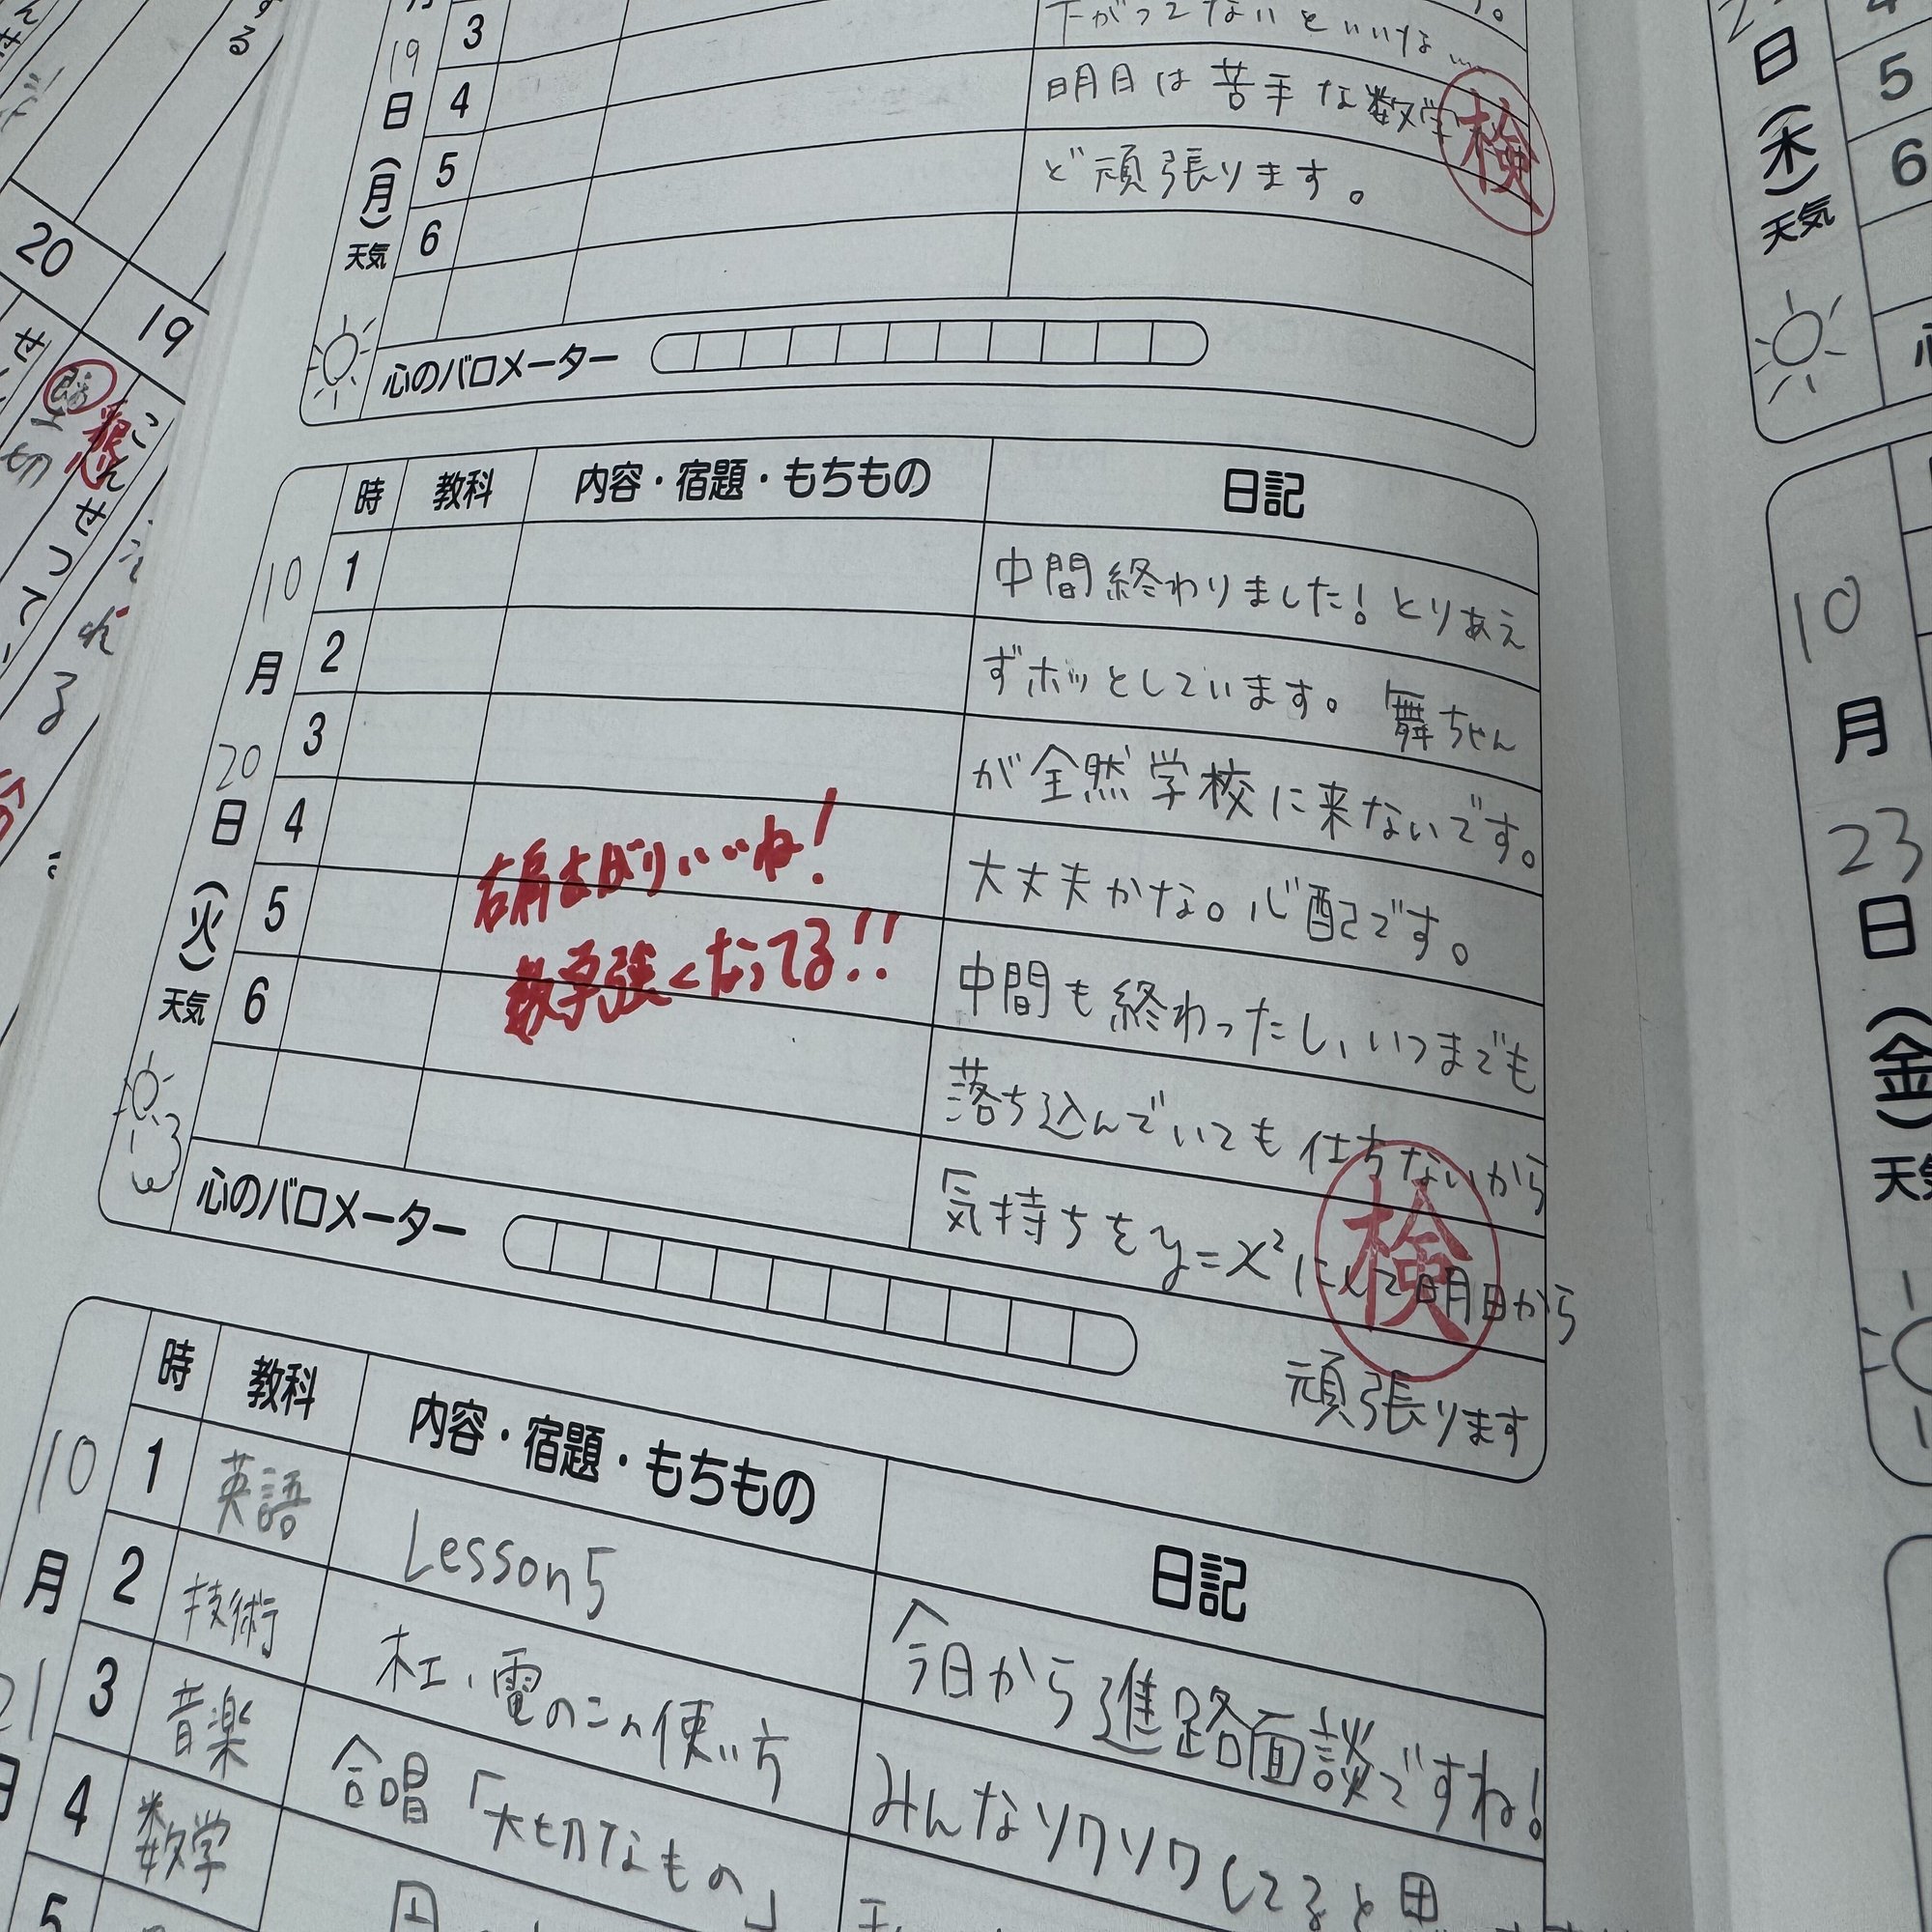 3
下がってないといいな…
19
4
明日は苦手な数学
検
日
5
ど頑張ります。
(月)
6
天気
心のバロメーター
時
教科
内容・宿題・もちもの
日記
10
月
20
日
(火)
天気
1
中間終わりました！とりあえ
2
ずホッとしています。舞ちゃん
3
が全然学校に来ないです。
4
大丈夫かな。心配です。
5
中間も終わったし、いつまでも
6
落ち込んでいても仕方ないから
気持ちをy=x²にして明日から
頑張ります
検
右肩上がりいいね！
数学強くなってる!!
心のバロメーター
時
教科
内容・宿題・もちもの
日記
10
月
21
1
英語
Lesson5
今日から進路面談ですね！
2
技術
木工、電のこの使い方
みんなソワソワしてると思
3
音楽
合唱「大切なもの」
4
数学
5
日
(木)
天気
5
6
10
月
23
日
(金)
20
19
る